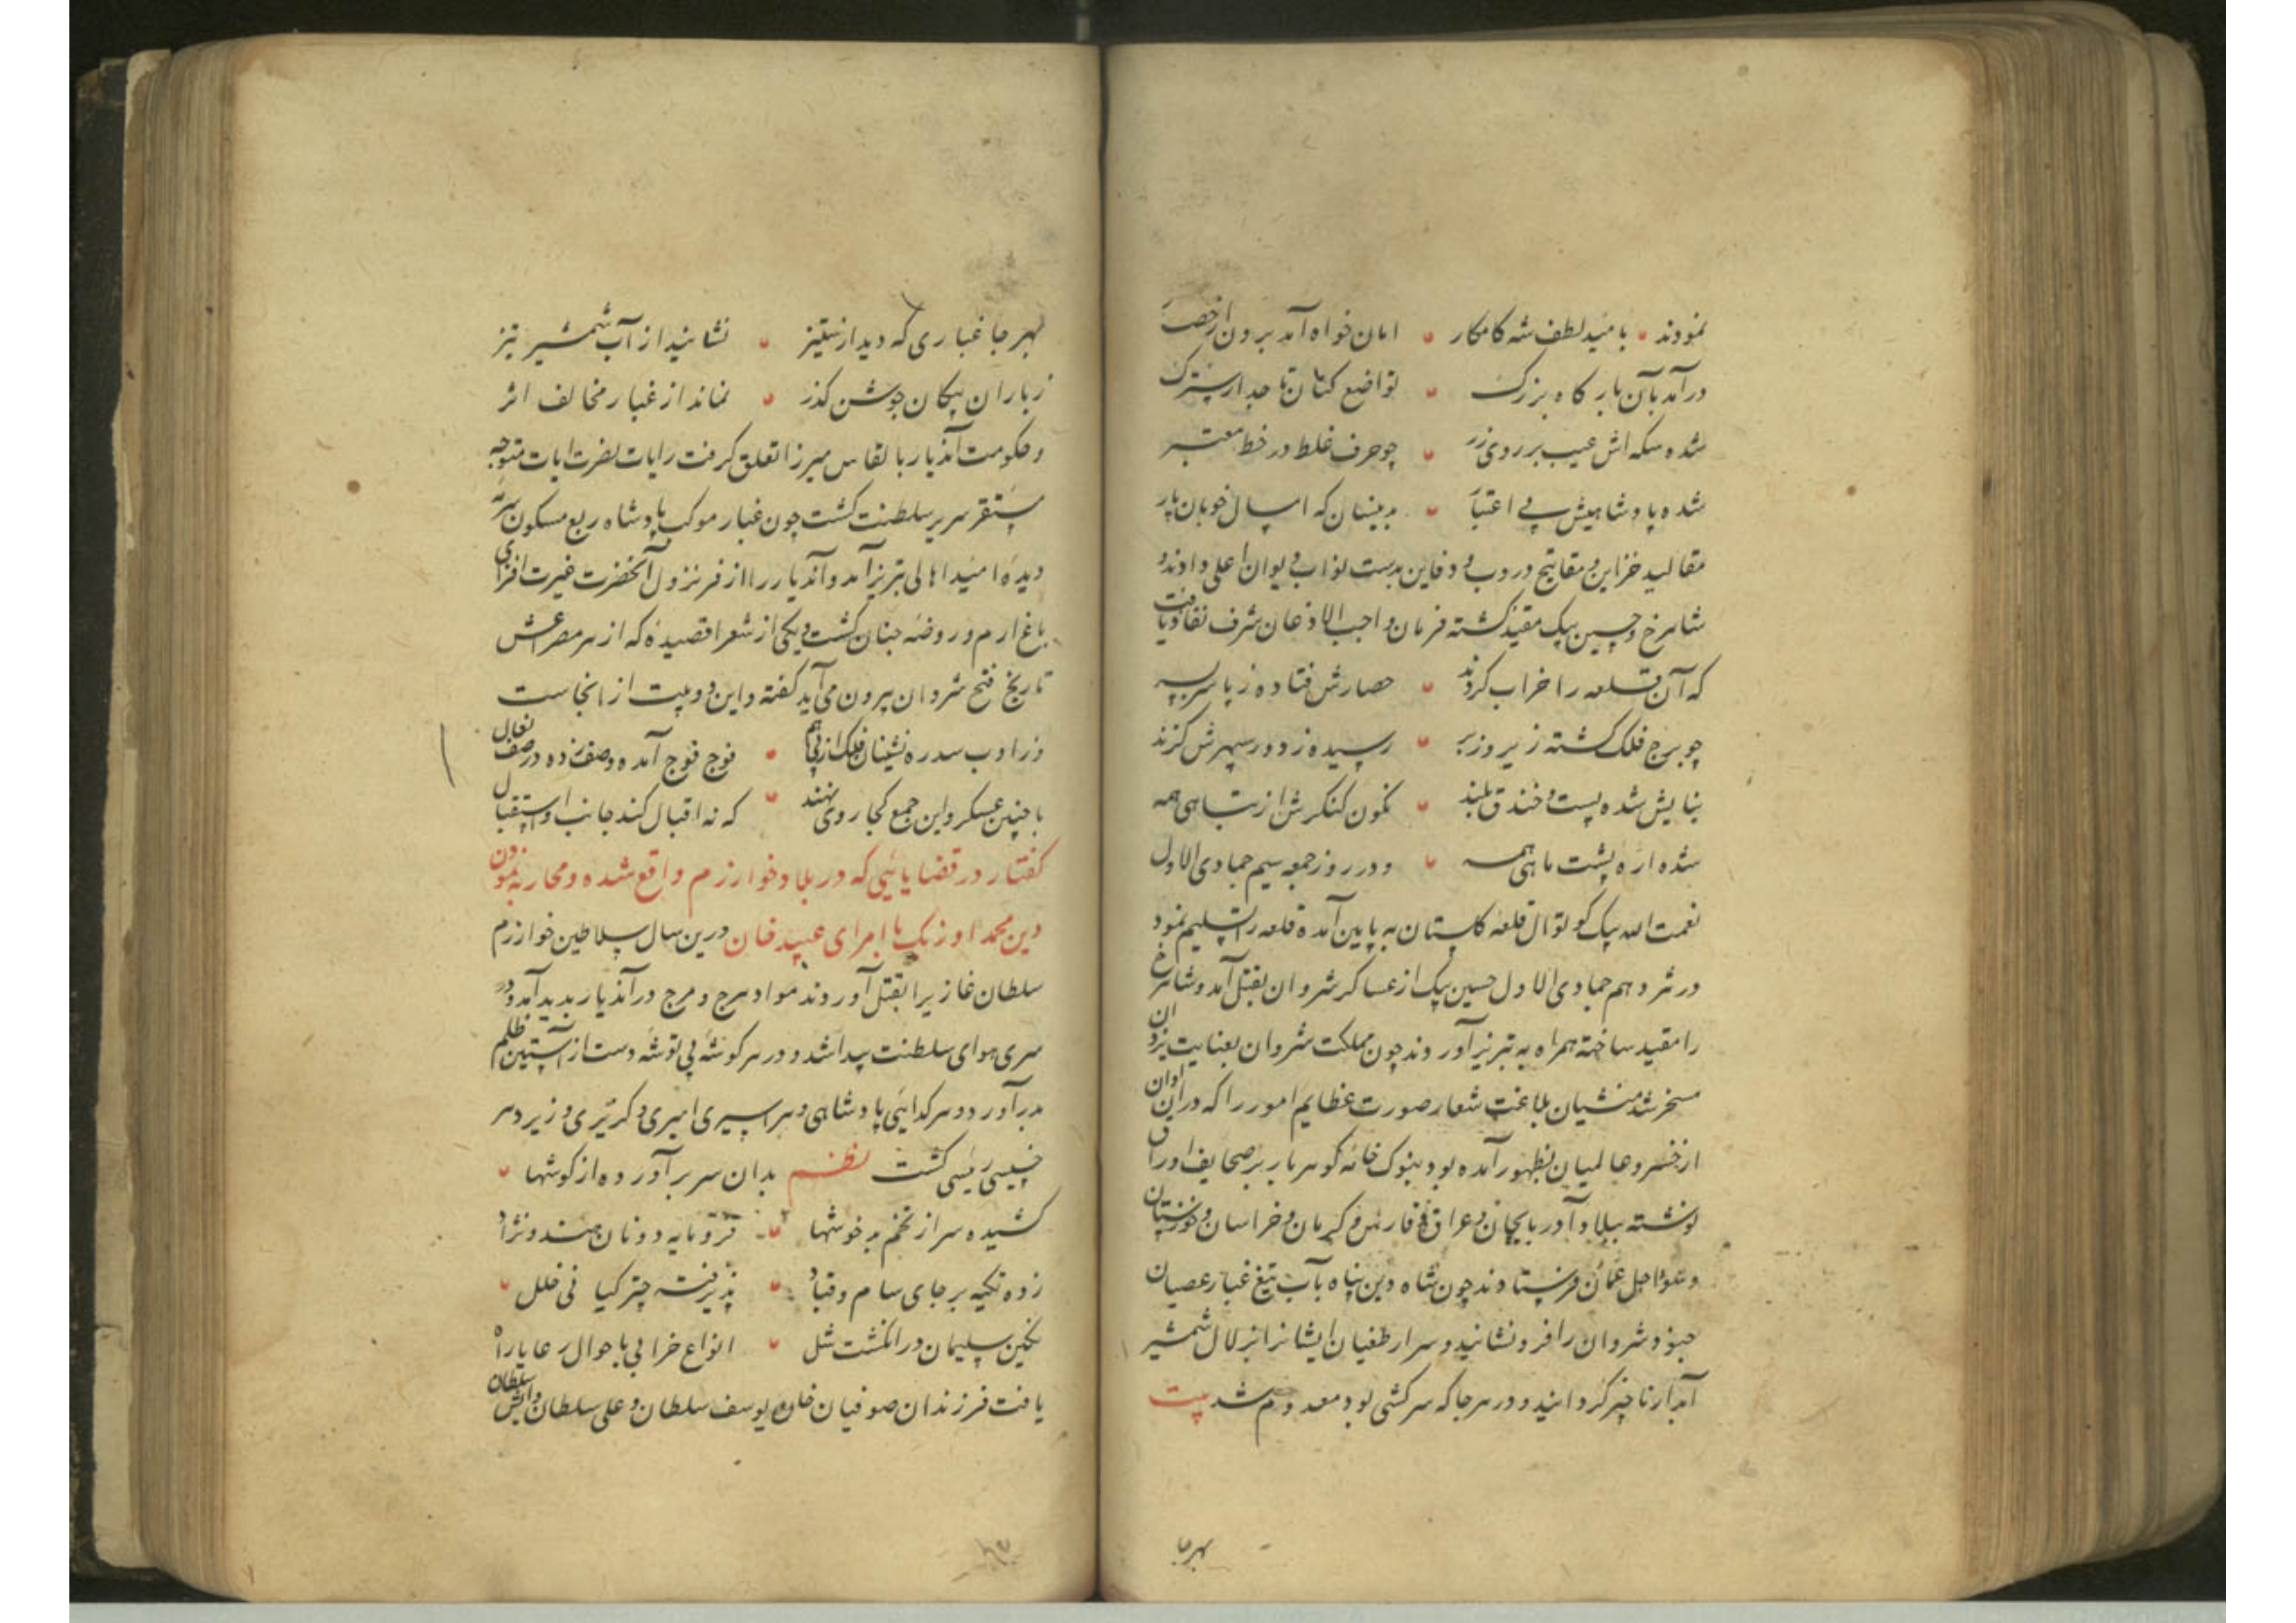 نمودند بامید لطف شه کامکار امان خواه آمد برون از حصار
درآمد بآن بارگاه بزرگ تواضع کنان تاجدار سترک
شده سکه‌اش عیب بر روی زر چو حرف غلط در خط معتبر
شده پادشاهیش بی اعتبار بدینسان که امسال خوبان پار
مقالید خزاین و مفاتیح دروب و دفاین بدست نواب دیوان اعلی دادند و
شاهرخ و حسین بیک مقید گشته فرمان واجب الاذعان شرف نفاذ یافت
که آن قلعه را خراب کردند حصارش فتاده ز پا سربسر
چو برج فلک گشته زیر و زبر رسیده ز دور سپهرش گزند
بنایش شده پست و خندق بلند نگون کنگرش از تباهی همه
شده اره پشت ماهی همه و در روز جمعه سیم جمادی الاول
نعمت الله بیک کوتوال قلعه گلستان به پایین آمده قلعه را تسلیم نمود
در شردهم جمادی الاول حسین بیک از عساکر شروان بقتل آمد و شاهرخ
را مقید ساخته همراه به تبریز آوردند چون مملکت شروان بعنایت یزدان
مسخر شد منشیان بلاغت شعار صورت عظایم امور را که دران اوان
از خسرو عالمیان بظهور آمده بود بنوک خامه گوهربار بر صحایف اوراق
نوشته ببلاد آذربایجان و عراق و فارس و کرمان و خراسان و خوزستان
و سواحل عمان فرستادند چون شاه دین پناه بآب تیغ غبار عصیان
جنود شروان را فرو نشانید و شرار طغیان ایشانرا بزلال شمشیر
آبدار ناچیز گردانید و در هر جا که سرکشی بود معدوم شد بیت
بهر جا
بهر جا غباری که دید از ستیز نشانید از آب شمشیر تیز
ز باران پیکان جوشن گذر نماند از غبار مخالف اثر
و حکومت آندیار بالقاس میرزا تعلق گرفت رایات نصرت ایات متوجه
مستقر سریر سلطنت گشت چون غبار موکب پادشاه ربع مسکون سرمه
دیده امید اهالی تبریز آمد و آندیار را از فر نزول آنحضرت غیرت افزای
باغ ارم و روضه جنان گشت و یکی از شعرا قصیده که از هر مصراعش
تاریخ فتح شروان بیرون می‌آید گفته و این دو بیت از انجاست
وز ادب سدره نشینان فلک از پی هم فوج فوج آمده و صف زده در صف نعال
با چنین عسکر و این جمع کجا روی نهند که نه اقبال کند جانب او استقبال
گفتار در قضایائی که در بلاد خوارزم واقع شده و محاربه نمودن
دین محمد اوزبک با امرای عبید خان درین سال سلاطین خوارزم
سلطان غازیرا بقتل آوردند مواد هرج و مرج در آندیار پدید آمد و در
سری هوای سلطنت پیدا شد و در هر گوشه بی توشه دست از آستین ظلم
برآورد و هر گدایئی پادشاهی و هر اسیری امیری و گریزی وزیر و هر
خسیسی رئیسی گشت نظم بدان سر برآورده از گوشها
کشیده سر از تخم به خوشها فرومایه دونان هندو نژاد
زده تکیه بر جای سام و قباد پذیرفته چتر کیا نی خلل
نگین سلیمان در انگشت شل انواع خرابی باحوال رعایا راه
یافت فرزندان صوفیان خان یوسف سلطان و علی سلطان و ایش سلطان